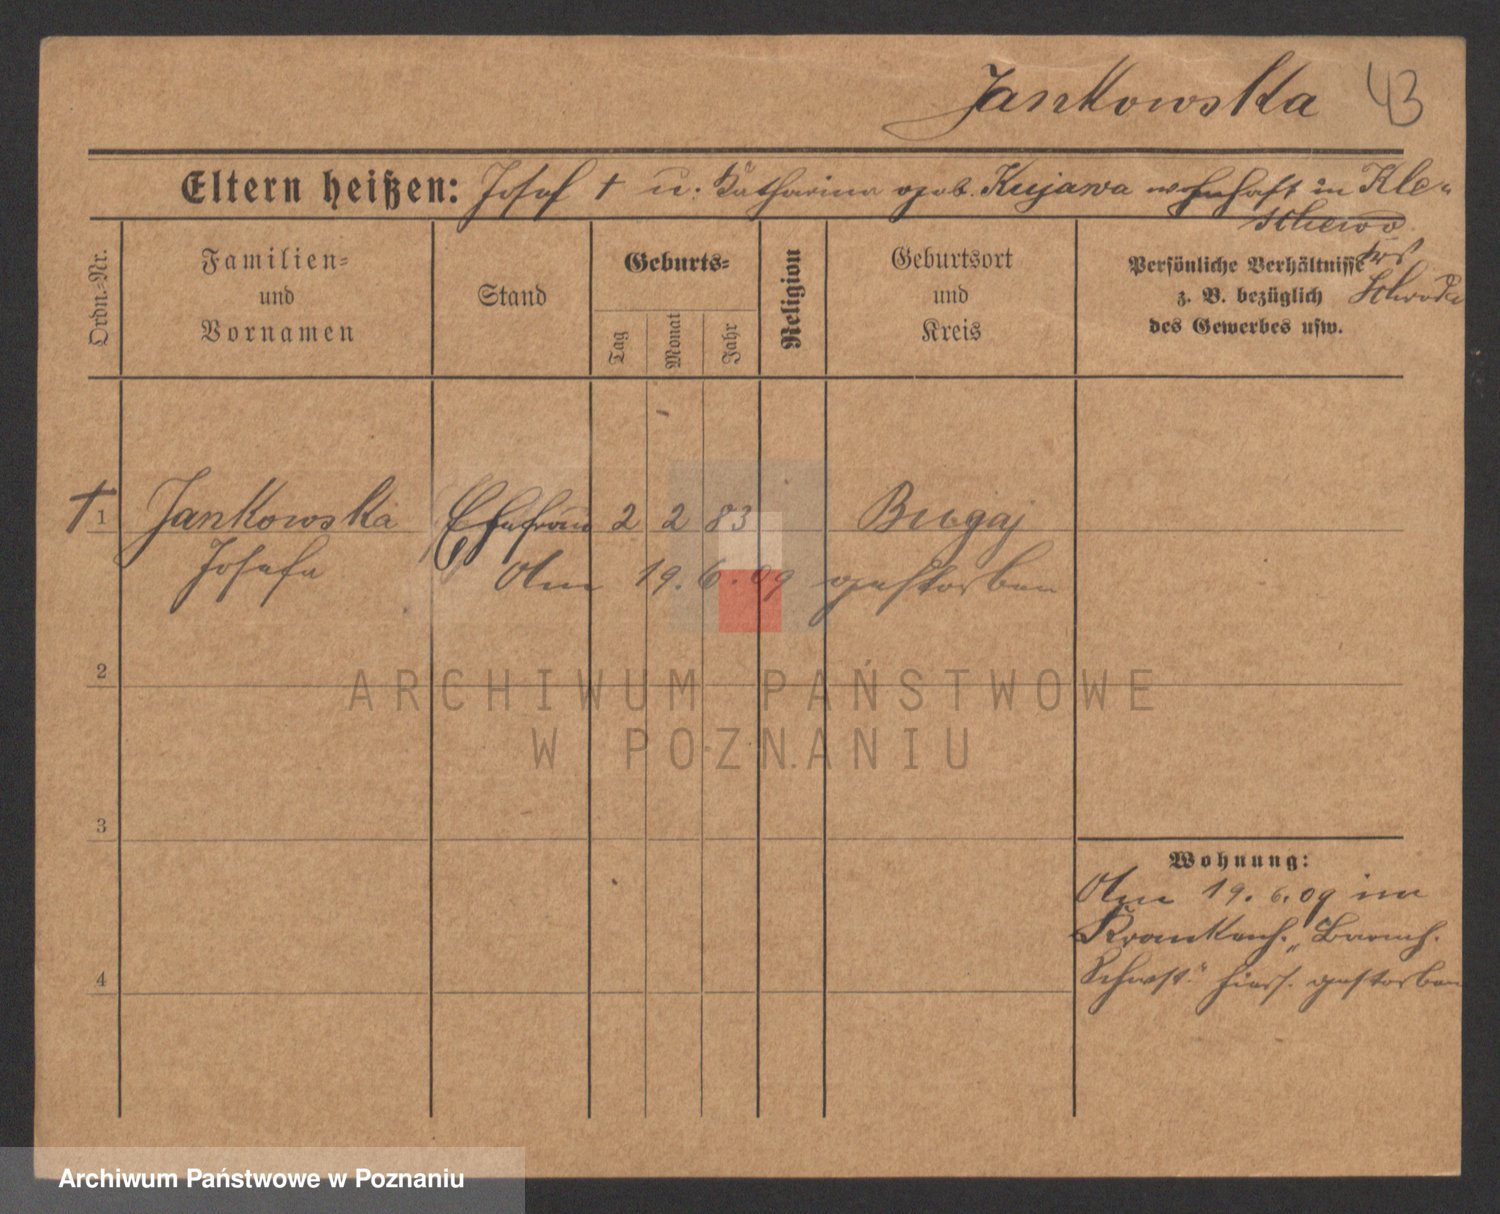 Jankowska 43
Eltern heißen: Josef † u. Katharina geb. Kujawa wohnhaft in Kle-
schewo
Krs
Schroda
Ordn.-Nr.
Familien-
und
Vornamen
Stand
Geburts-
Tag
Monat
Jahr
Religion
Geburtsort
und
Kreis
Persönliche Verhältnisse
z. B. bezüglich
des Gewerbes usw.
† 1 Jankowska Ehefrau 2 2 83 Bugaj
Josefa Am 19.6.09 gestorben
2
ARCHIWUM PAŃSTWOWE
W POZNANIU
3
Wohnung:
Am 19.6.09 im
Krankenh. „Barmh.
Schwst." hiers. gestorben
4
Archiwum Państwowe w Poznaniu